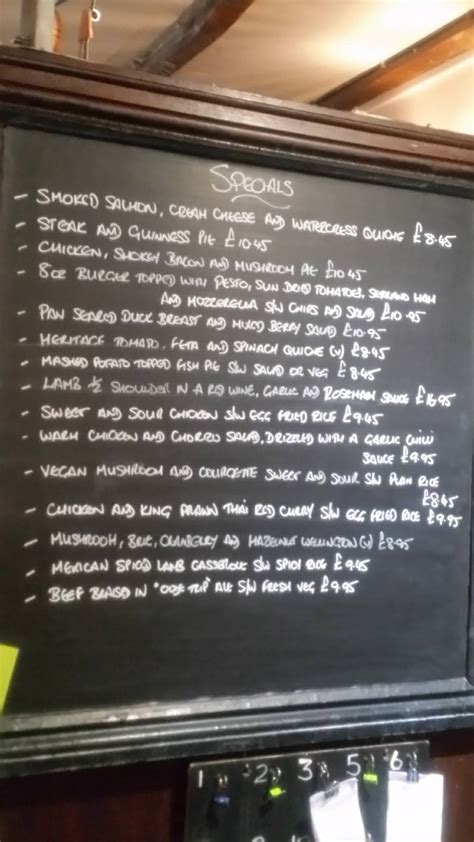 SPECIALS
- SMOKED SALMON, CREAM CHEESE AND WATERCRESS QUICHE £8.45
- STEAK AND GUINNESS PIE £10.45
- CHICKEN, SMOKEY BACON AND MUSHROOM PIE £10.45
- 8oz BURGER TOPPED WITH PESTO, SUN DRIED TOMATOES, SERRANO HAM
AND MOZZERELLA S/W CHIPS AND SALAD £10.95
- PAN SEARED DUCK BREAST AND MIXED BERRY SALAD £10.95
- HERITAGE TOMATO, FETA AND SPINACH QUICHE (V) £8.45
- MASHED POTATO TOPPED FISH PIE S/W SALAD OR VEG £8.45
- LAMB ½ SHOULDER IN A RED WINE, GARLIC AND ROSEMARY SAUCE £16.95
- SWEET AND SOUR CHICKEN S/W EGG FRIED RICE £9.45
- WARM CHICKEN AND CHORIZO SALAD, DRIZZLED WITH A GARLIC CHILLI
SAUCE £9.95
- VEGAN MUSHROOM AND COURGETTE SWEET AND SOUR S/W PLAIN RICE
£8.45
- CHICKEN AND KING PRAWN THAI RED CURRY S/W EGG FRIED RICE £9.95
- MUSHROOM, BRIE, CRANBERRY AND HAZELNUT WELLINGTON (V) £8.95
- MEXICAN SPICED LAMB CASSEROLE S/W SPICY RICE £9.45
- BEEF BRAISED IN " TRIP" ALE S/W FRESH VEG £9.95
1 2 3 5 6